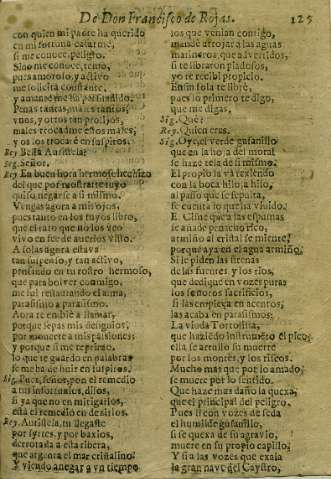 De Don Francisco de Rojas. 125
con quien mi padre ha querido
en mi fortuna casarme,
si me conoce, peligro.
Sino me conoce, tento,
pues amoroso, y activo
me solicita constante,
y amante me ha persuadido.
Penas tantas, males tantos,
vnos, y otros tan prolijos,
males trocadme estos males,
y os los trocarè en suspiros.
Rey. Bella Auristela?
Seg. Señor,
Rey. En buen hora hermoso hechizo
del que por mostrarte tuyo
quiso negarse a si mismo.
Vengas agora a mis ojos,
pues tanto en los tuyos libro,
que el rato que no los veo
vivo en fee de averlos visto.
A solas agora estava
tan suspenso, y tan activo,
pensando en tu rostro hermoso,
que para bolver conmigo,
me fui restaurando el alma,
parasismo a parasismo.
Aora te embiè a llamar,
porque sepas mis designios,
por moverte a mis passiones;
y porque si me reprimo,
lo que se guardò en palabras
se me ha de huir en suspiros.
Sig. Pues, señor, pon el remedio
a tus informados, dilos,
si ya que no en mitigarlos,
està el remedio en dezirlos.
Rey. Auristela, tu llegaste
por syrtes, y por baxios,
derrotada a essa ribera,
que argenta el mar cristalino:
Y viendo anegar a vn tiempo
los que venian contigo,
mandè arrojar a las aguas
marineros, que advertidos,
si te libraron piadosos,
yo te recibì propicio.
En fin sola te librè,
pues lo primero te digo,
que me digas,
Sig. Què?
Rey. Quien eres.
Sig. Oye, el verde gusanillo
que en la hoja del moral
se haze tela de si mismo.
El propio la và texiendo
con la boca hilo, a hilo,
al paño que se sepulta,
se canta lo que ha vivido.
E. Cisne que a las espumas
se añade penacho rico,
armiño al cristal se miente,
porque aya en el agua armiño,
Si le piden las sirenas
de las fuentes, y los rios,
que dedique en vozes puras
los sonoros sacrificios,
si las empieça en acentos,
las acaba en parasismos.
La viuda Tortolilla,
que haziendo instrumento el pico,
ella se arrulló su muerte
por los montes, y los riscos.
Mucho mas que por lo amado
se muere por lo sentido.
Que haze mas daño la quexa,
que el principal del peligro.
Pues si con vozes de seda
el humilde gusanillo,
si se quexa de su agravio,
muere en su propio capillo,
Y si a las vozes que exala
la gran nave del Caystro,